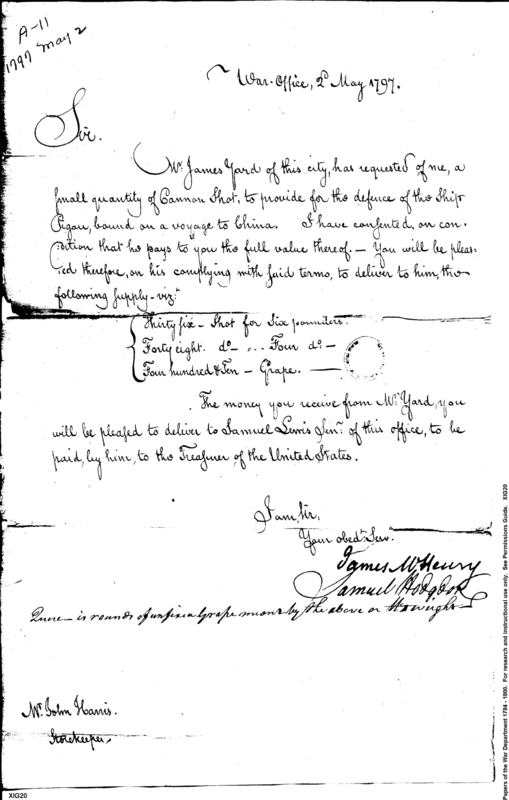 A-11
1797 May 2
War-Office, 2d May 1797.
Sir.
Mr. James Yard of this city, has requested of me, a
small quantity of Cannon Shot, to provide for the defence of the Ship
Pigou, bound on a voyage to China. I have consented, on con-
dition that he pays to you the full value thereof. – You will be pleas-
ed therefore, on his complying with said terms, to deliver to him, the
following supply – vizt.
Thirty six – Shot for Six pounders.
Forty eight. do – .. Four do –
Four hundred & Ten – Grape. –
The money you receive from Mr. Yard, you
will be pleased to deliver to Samuel Lewis Senr. of this office, to be
paid, by him, to the Treasurer, of the United States.
I am, Sir,
Your obedt. Servt.
James McHenry
Samuel Hodgdon
Quere – is rounds of unfixed grape meant by the above or the weight
Mr. John Harris.
Storekeeper.
XIG20
Papers of the War Department 1784 - 1800. For research and instructional use only. See Permissions Guide. XIG20